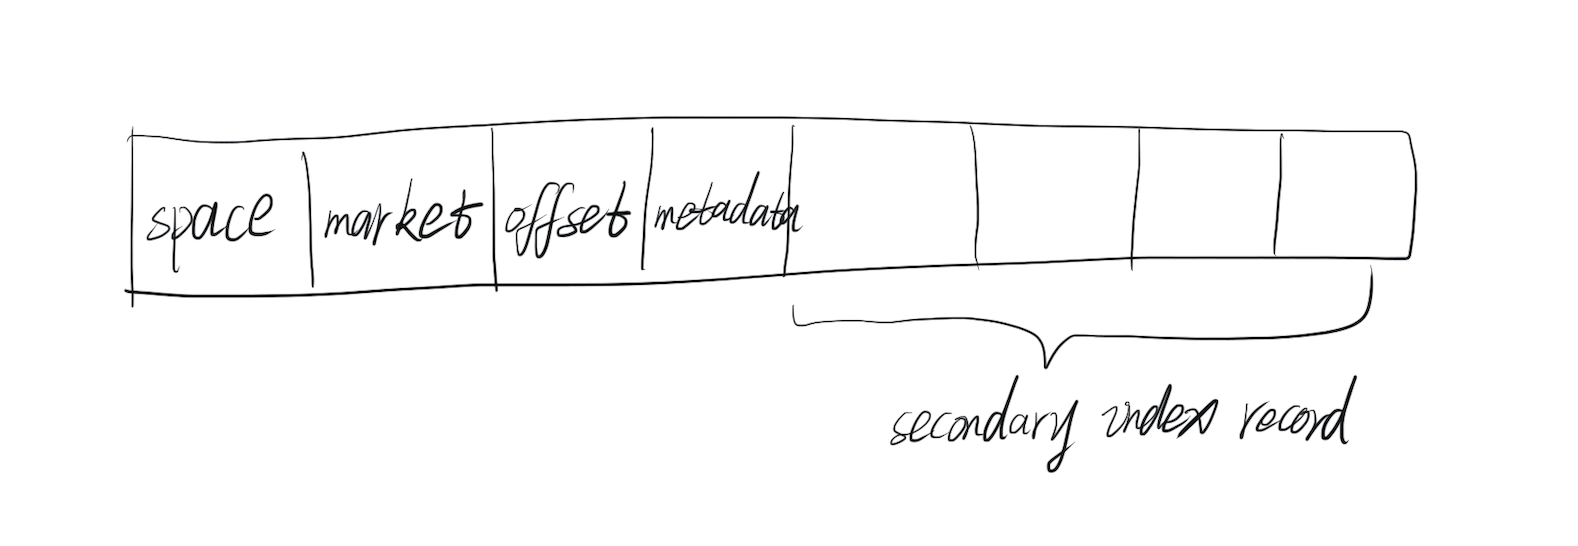 space market offset metadata
secondary index record